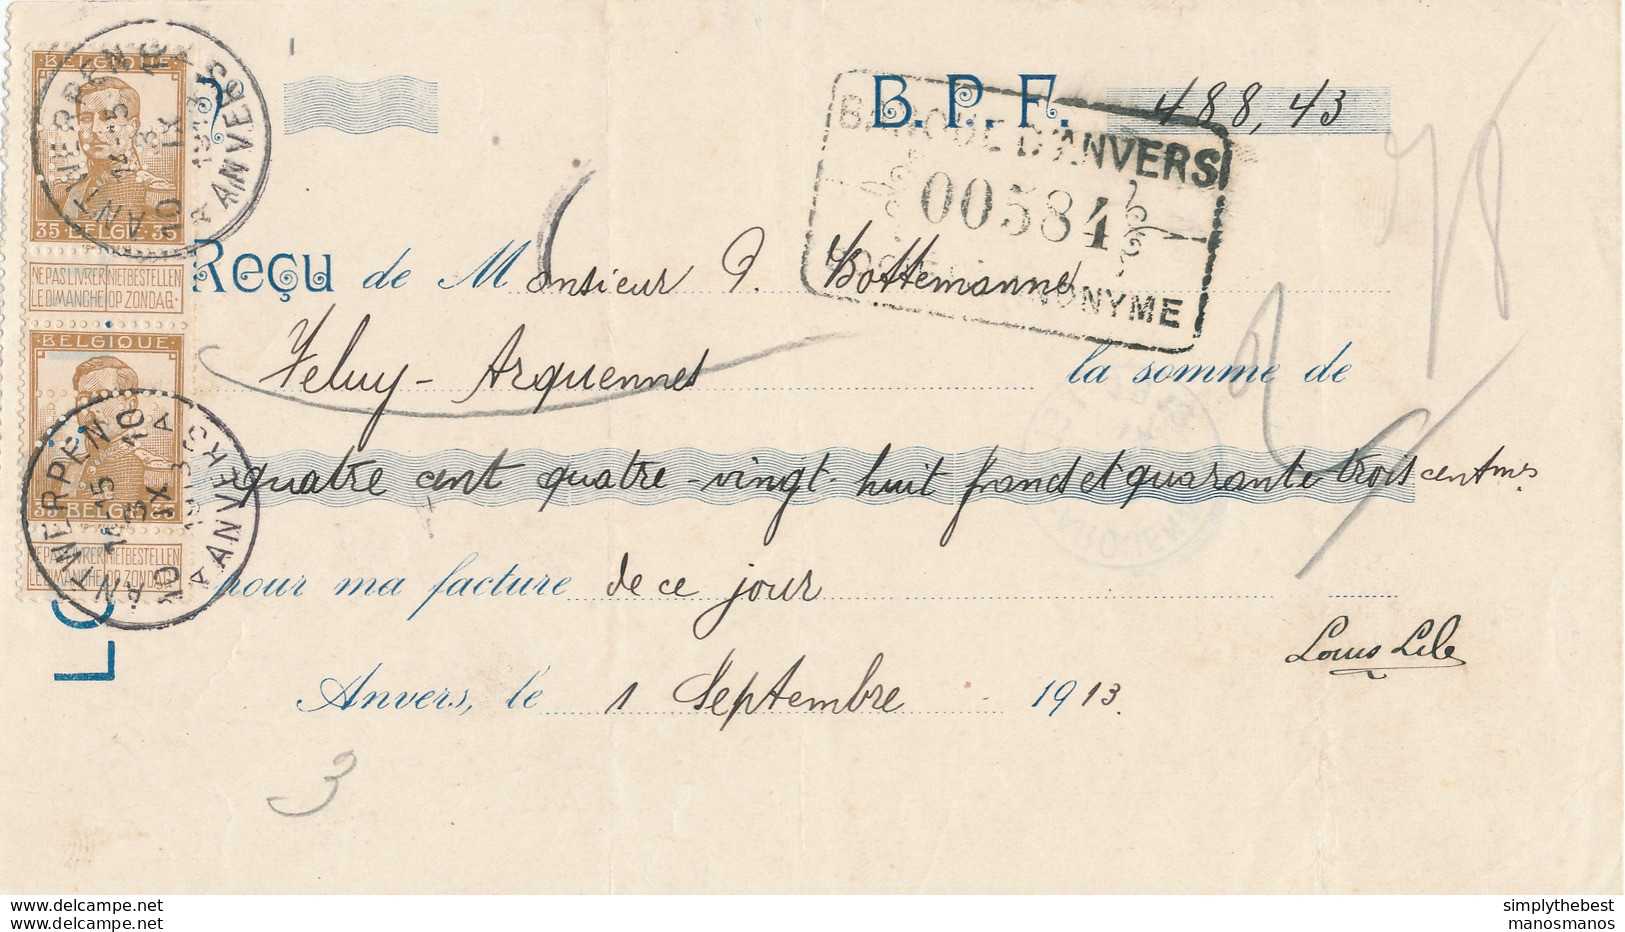 BELGIQUE
35 · BELGIË · 35
NE PAS LIVRER NIET BESTELLEN
LE DIMANCHE OP ZONDAG
BELGIQUE
35 · BELGIË · 35
NE PAS LIVRER NIET BESTELLEN
LE DIMANCHE OP ZONDAG
ANTWERPEN
ANVERS
ANTWERPEN
ANVERS
B.P.F. 488,43
BANQUE D'ANVERS
00584
ANONYME
Reçu de Monsieur
Feluy - Arquennes la somme de
quatre cent quatre-vingt-huit francs et quarante trois centmes
pour ma facture de ce jour
Anvers, le 1 Septembre 1913.
3
simplythebest
manosmanos